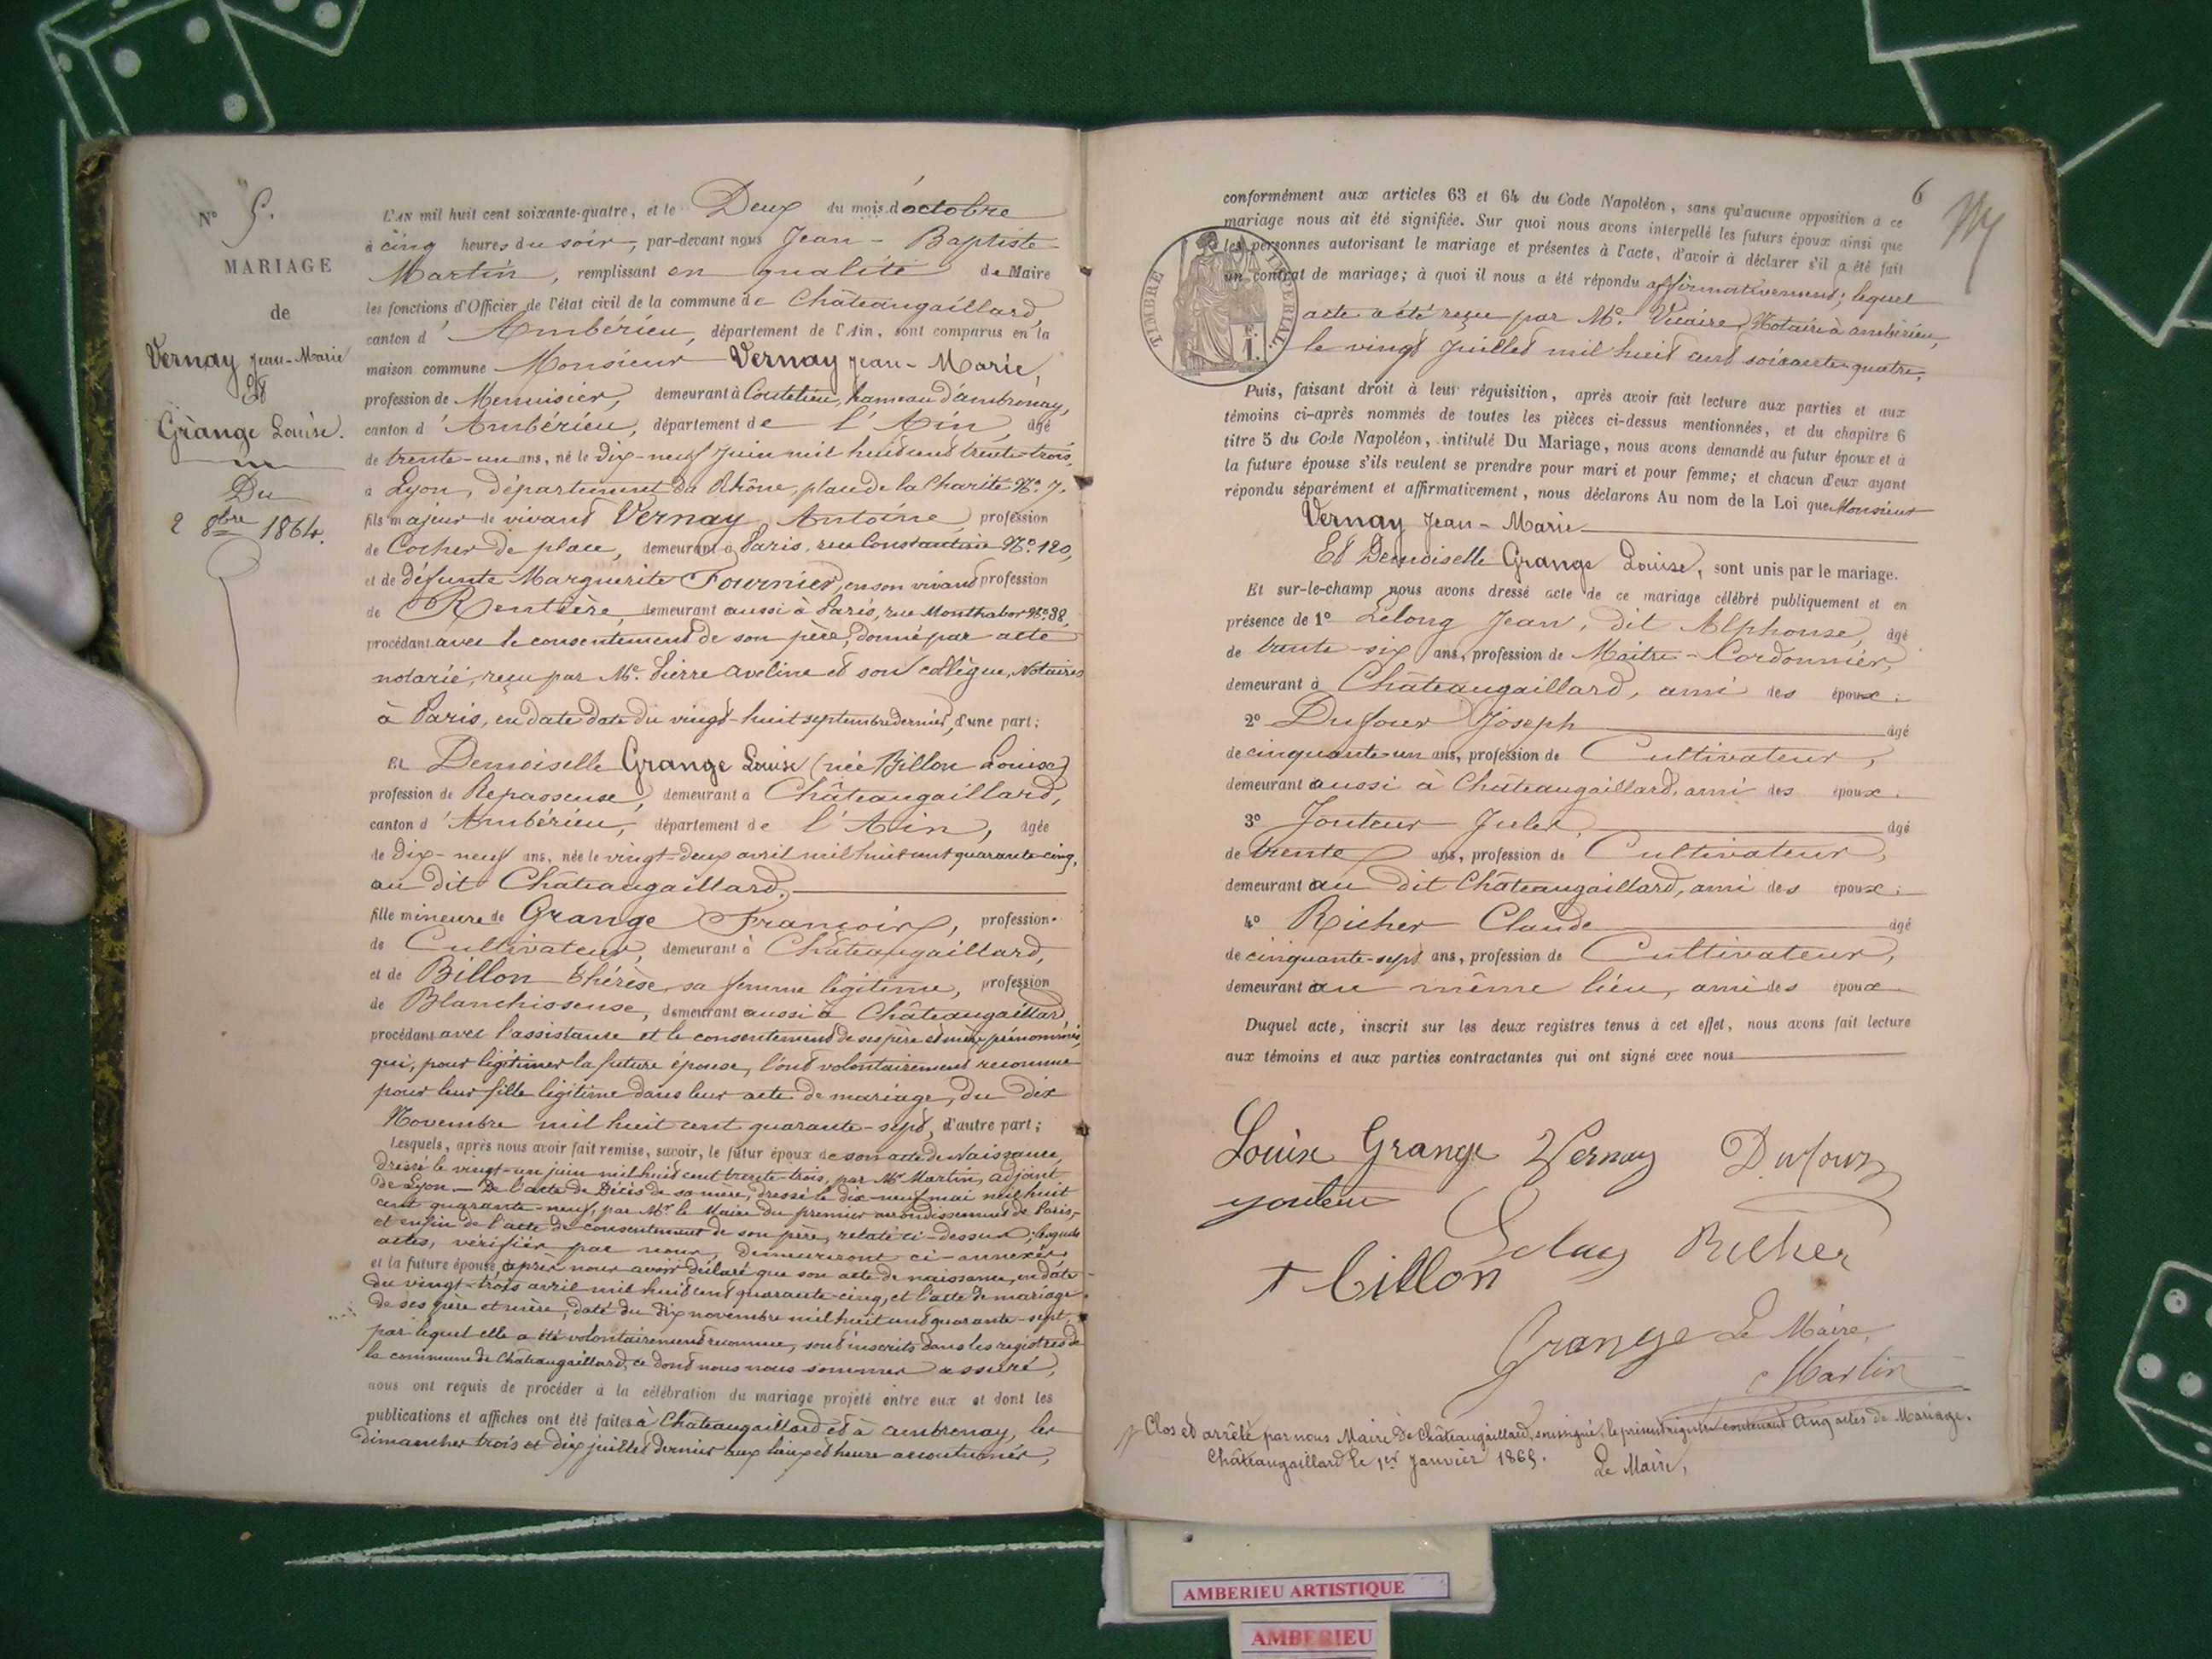 N° 5.
MARIAGE
de
Vernay Jean-Marie
Et
Grange Louise.
Du
2 8bre 1864.
L'AN mil huit cent soixante-quatre, et le Deux du mois d'octobre
à cinq heures du soir, par-devant nous Jean-Baptiste
Martin, remplissant en qualité de Maire
les fonctions d'Officier de l'état civil de la commune de Châteaugaillard,
canton d'Ambérieu, département de l'Ain, sont comparus en la
maison commune Monsieur Vernay Jean-Marie,
profession de Menuisier, demeurant à Coutelieu, hameau d'ambronay,
canton d'Ambérieu, département de l'Ain, âgé
de trente-un ans, né le dix-neuf Juin mil huit cent trente-trois,
à Lyon, département du Rhône, place de la Charité N° 7.
fils majeur de vivant Vernay Antoine, profession
de Cocher de place, demeurant à Paris, rue Constantine N° 120,
et de défunte Marguerite Fournier, en son vivant profession
de Rentière, demeurant aussi à Paris, rue Monthabor N° 38,
procédant avec le consentement de son père, donné par acte
notarié, reçu par Me. Pierre Aveline et son collègue, Notaires
à Paris, en date date du vingt-huit septembre dernier, d'une part;
Et Demoiselle Grange Louise (née Billon Louise)
profession de Repasseuse, demeurant à Châteaugaillard,
canton d'Ambérieu, département de l'Ain, âgée
de dix-neuf ans, née le vingt-deux avril mil huit cent quarante-cinq,
au dit Châteaugaillard,
fille mineure de Grange François, profession
de Cultivateur, demeurant à Châteaugaillard,
et de Billon Thérèse, sa femme légitime, profession
de Blanchisseuse, demeurant aussi à Châteaugaillard,
procédant avec l'assistance et le consentement de ses père et mère prénommés,
qui, pour légitimer la future épouse, l'ont volontairement reconnue
pour leur fille légitime dans leur acte de mariage, du dix
Novembre mil huit cent quarante-sept, d'autre part;
Lesquels, après nous avoir fait remise, savoir, le futur époux de son acte de Naissance,
dressé le vingt-un juin mil huit cent trente-trois, par Mr Martin, adjoint
de Lyon. — De l'acte de Décès de sa mère, dressé le dix-neuf mai mil huit
cent quarante-neuf, par Mr. le Maire du premier arrondissement de Paris,
et enfin de l'acte de consentement de son père, relaté ci-dessus; lesquels
actes, vérifiés par nous, demeureront ci-annexés
et la future épouse, après nous avoir déclaré que son acte de naissance, en date
du vingt-trois avril mil huit cent quarante-cinq, et l'acte de mariage
de ses père et mère, daté du dix novembre mil huit cent quarante-sept,
par lequel elle a été volontairement reconnue, sont inscrits dans les registres de
la commune de Châteaugaillard, ce dont nous nous sommes assuré,
nous ont requis de procéder à la célébration du mariage projeté entre eux et dont les
publications et affiches ont été faites à Châteaugaillard et à ambronay, les
dimanches trois et dix juillet dernier aux lieux et heure accoutumés,
6
conformément aux articles 63 et 64 du Code Napoléon, sans qu'aucune opposition à ce
mariage nous ait été signifiée. Sur quoi nous avons interpellé les futurs époux ainsi que
les personnes autorisant le mariage et présentes à l'acte, d'avoir à déclarer s'il a été fait
un contrat de mariage; à quoi il nous a été répondu affirmativement; lequel
acte a été reçu par Me. Vicaire, Notaire à ambérieu,
le vingt Juillet mil huit cent soixante-quatre.
TIMBRE IMPERIAL.
F.
1.
Puis, faisant droit à leur réquisition, après avoir fait lecture aux parties et aux
témoins ci-après nommés de toutes les pièces ci-dessus mentionnées, et du chapitre 6
titre 5 du Code Napoléon, intitulé Du Mariage, nous avons demandé au futur époux et à
la future épouse s'ils veulent se prendre pour mari et pour femme; et chacun d'eux ayant
répondu séparément et affirmativement, nous déclarons Au nom de la Loi que Monsieur
Vernay Jean-Marie
Et Demoiselle Grange Louise, sont unis par le mariage.
Et sur-le-champ nous avons dressé acte de ce mariage célébré publiquement et en
présence de 1° Lelong Jean, dit Alphonse, âgé
de trente-six ans, profession de Maître-Cordonnier,
demeurant à Châteaugaillard, ami des époux.
2° Dufour Joseph âgé
de cinquante-un ans, profession de Cultivateur,
demeurant aussi à Châteaugaillard, ami des époux.
3° Jouteur Jules, âgé
de trente ans, profession de Cultivateur,
demeurant au dit Châteaugaillard, ami des époux.
4° Richer Claude âgé
de cinquante-sept ans, profession de Cultivateur,
demeurant au même lieu, ami des époux
Duquel acte, inscrit sur les deux registres tenus à cet effet, nous avons fait lecture
aux témoins et aux parties contractantes qui ont signé avec nous
Louise Grange Vernay Dufour
Richer
Billon
Grange Le Maire,
Martin
Clos et arrêté par nous Maire de Châteaugaillard, soussigné, le présent registre contenant cinq actes de Mariage.
Châteaugaillard le 1er Janvier 1865. Le Maire,
AMBERIEU ARTISTIQUE
AMBERIEU